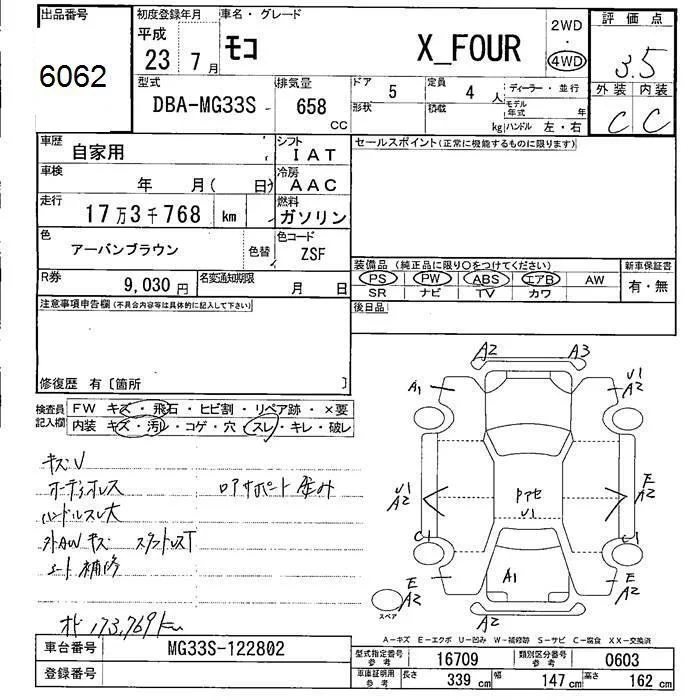 出品番号
6062
初度登録年月
平成
23年 7月
車名・グレード
モコ X_FOUR
2WD
・
4WD
評価点
3.5
外装 内装
C C
型式
DBA-MG33S
排気量
658
CC
ドア
5
定員
4人
ディーラー・並行
形状
積載
kg
モデル年式
年
ハンドル 左・右
車歴
自家用
シフト
IAT
車検
年 月( 日)
冷房
AAC
走行
17万3千768 km
燃料
ガソリン
色
アーバンブラウン
色替
色コード
ZSF
R券
9,030円
名変通知期限
月 日
セールスポイント(正常に機能するものに限ります)
装備品 (純正品に限り○をつけてください)
新車保証書
PS PW ABS エアB AW
有・無
SR ナビ TV カワ
後日品
注意事項申告欄(不具合内容等は具体的に記入して下さい)
修復歴 有〔箇所 〕
検査員
記入欄
FW キズ・飛石・ヒビ割・リペア跡・×要
内装 キズ・汚レ・コゲ・穴・スレ・キレ・破レ
キズU
オーディオレス
ロアサポート
ハンドルスレ大
外AWキズ
シート補修
173,769km
A2 A3
A1
U1
A2
U1
A2
E
A2
C1 C1
U1
A1
E
A2
E
A2
スペア
A2
A-キズ E-エクボ U-凹み W-補修跡 S-サビ C-腐食 XX-交換済
車台番号
MG33S-122802
登録番号
型式指定番号
参考
16709
類別区分番号
参考
0603
車庫証明用
参考
長さ
339 cm
幅
147 cm
高さ
162 cm